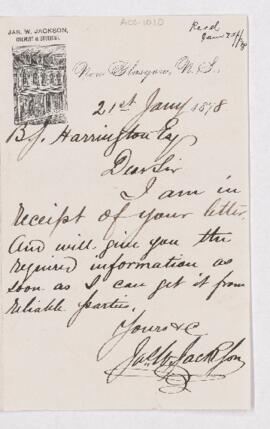 ACC-1010
Recd
JAS. W. JACKSON,
New Glasgow, N.S.,
21st Jany 1878
B.J. Harrington Esq
Dear Sir
I am in
receipt of your letter
and will give you the
required information as
soon as I can get it from
reliable parties.
Yours &c
Jas. W. Jackson